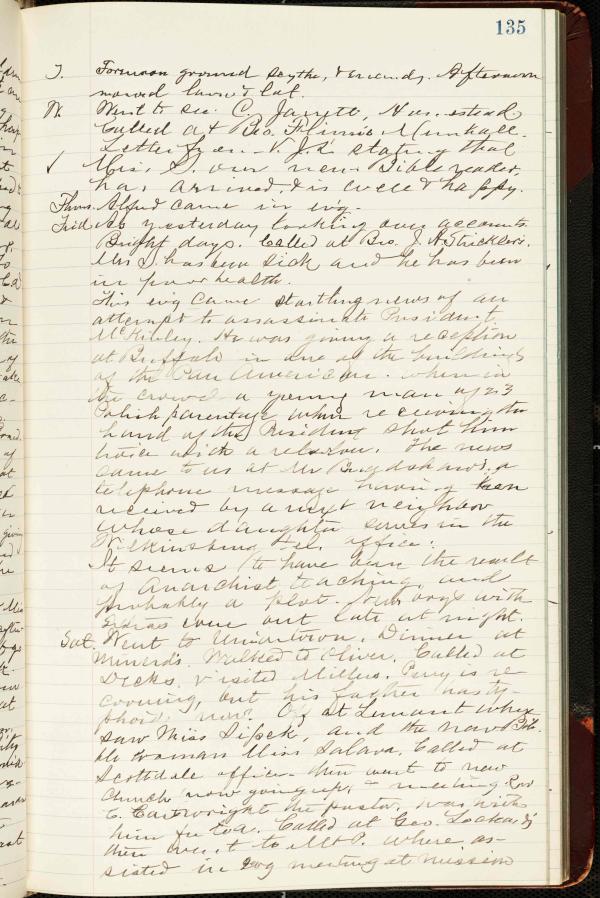 135
T. Forenoon ground scythe, & errands. Afternoon
mowed lawn & lot.
W. Went to see C. Jarrett,
Called at Bro. Menhall.
Letter from V. J. S. stating that
√ Mrs. S. our new Bible reader,
has arrived, & is well & happy.
Thurs. Alfred came in ev'g.
Frid. As yesterday looking over accounts.
Bright days. Called at Bro. J. H. Strickler's.
Mrs S. has been sick and he has been
in poor health.
This ev'g came startling news of an
attempt to assassinate President
McKinley. He was giving a reception
at Buffalo in one of the buildings
of the Pan American. when in
the crowd a young man of 23
Polish parentage when receiving the
hand of the President shot him
twice with a revolver. The news
came to us at Mr a
telephone message having been
received by a next neighbor
whose daughter serves in the
Wilkinsburg Tel. office.
It seems to have been the result
of Anarchist teaching, and
probably a plot. boys with
Extras were out late at night.
Sat. Went to Uniontown. Dinner at
Minerd's. Walked to Oliver. Called at
Dicks, visited Millers. Perry is re-
covering, but his father has ty-
phoid now. Off at Lemont where
saw Miss Sipek, and the new Bib-
le woman Miss Salava. Called at
Scottdale office. then went to new
church now going up, & meeting Rev
C. Cartwright the pastor, was with
him for tea. Called at Geo. Lockard's
then went to Mt P. where as-
sisted in ev'g meeting at Mission